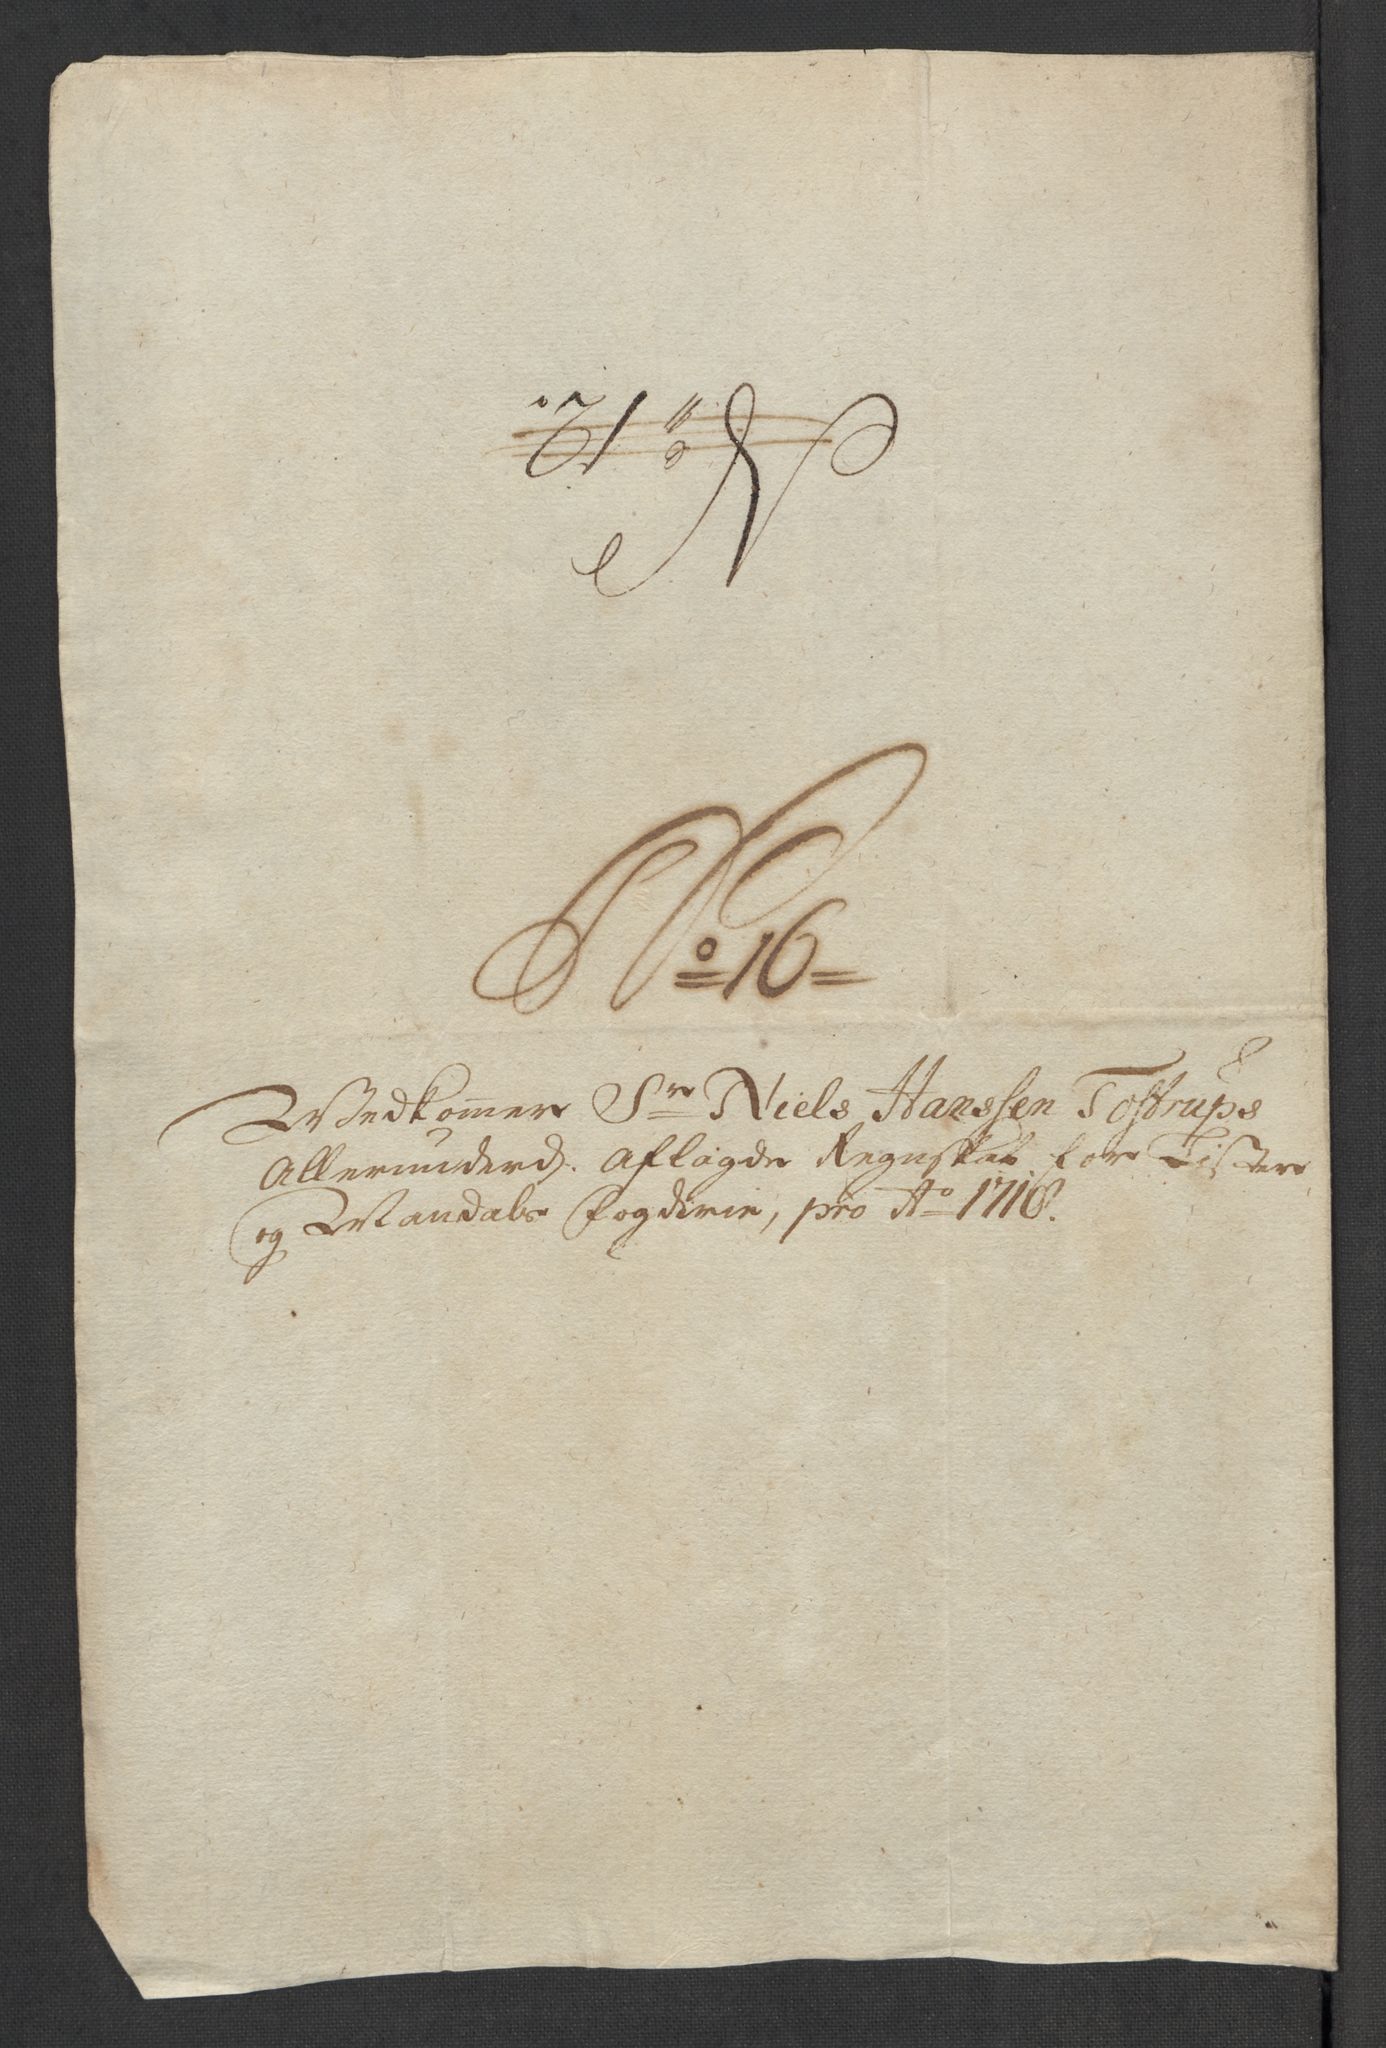 No 16
Vedkommer Sr Niels Hanssen Tostrups
Allerunderd. aflagde Regnskab for Lister
og Mandals Fogderie, pro Ao 1716.